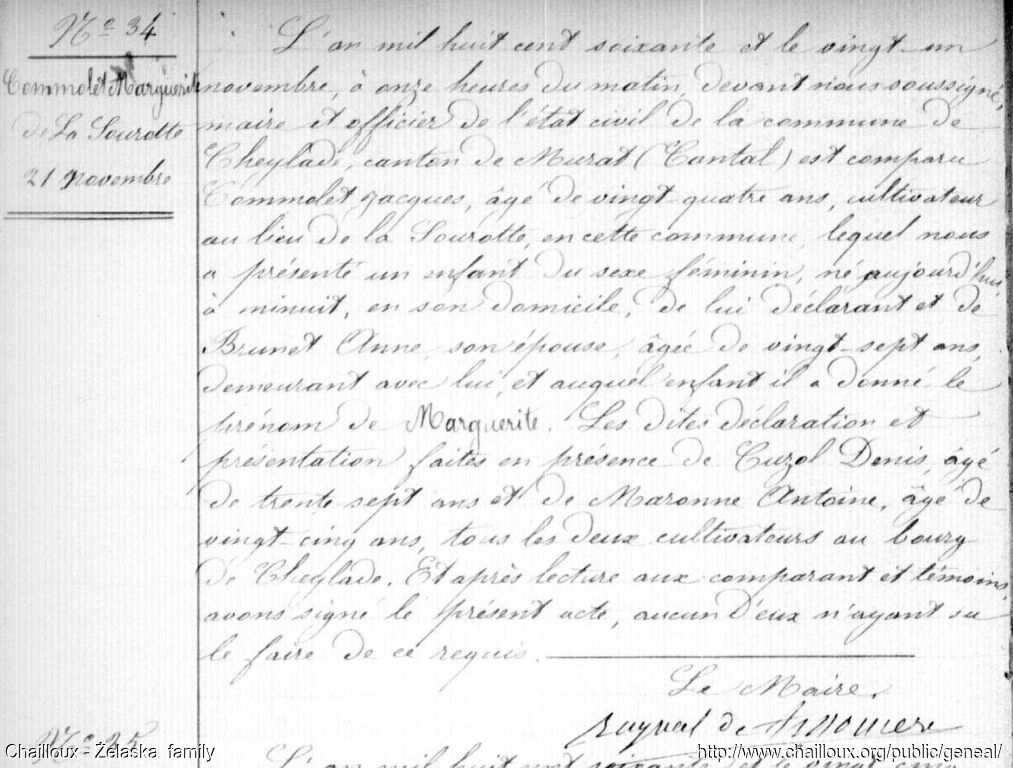 N° 34
Commolet Marguerite
de La Sourotte
21 novembre
L'an mil huit cent soixante et le vingt-un
novembre, à onze heures du matin, devant nous soussigné,
maire et officier de l'état civil de la commune de
Cheylade, canton de Murat (Cantal) est comparu
Commolet Jacques, âgé de vingt-quatre ans, cultivateur
au lieu de la Sourotte, en cette commune, lequel nous
a présenté un enfant du sexe féminin, né aujourd'hui
à minuit, en son domicile, de lui déclarant et de
Brunet Anne, son épouse, âgée de vingt-sept ans,
demeurant avec lui, et auquel enfant il a donné le
prénom de Marguerite. Les dites déclaration et
présentation faites en présence de Cuzol Denis, âgé
de trente-sept ans et de Maronne Antoine, âgé de
vingt-cinq ans, tous les deux cultivateurs au bourg
de Cheylade. Et après lecture aux comparant et témoins,
avons signé le présent acte, aucun d'eux n'ayant su
le faire de ce requis.
Le Maire,
de
N° 35
L'an mil huit cent soixante et le vingt cinq
Chailloux - Żelaska family
http://www.chailloux.org/public/geneal/